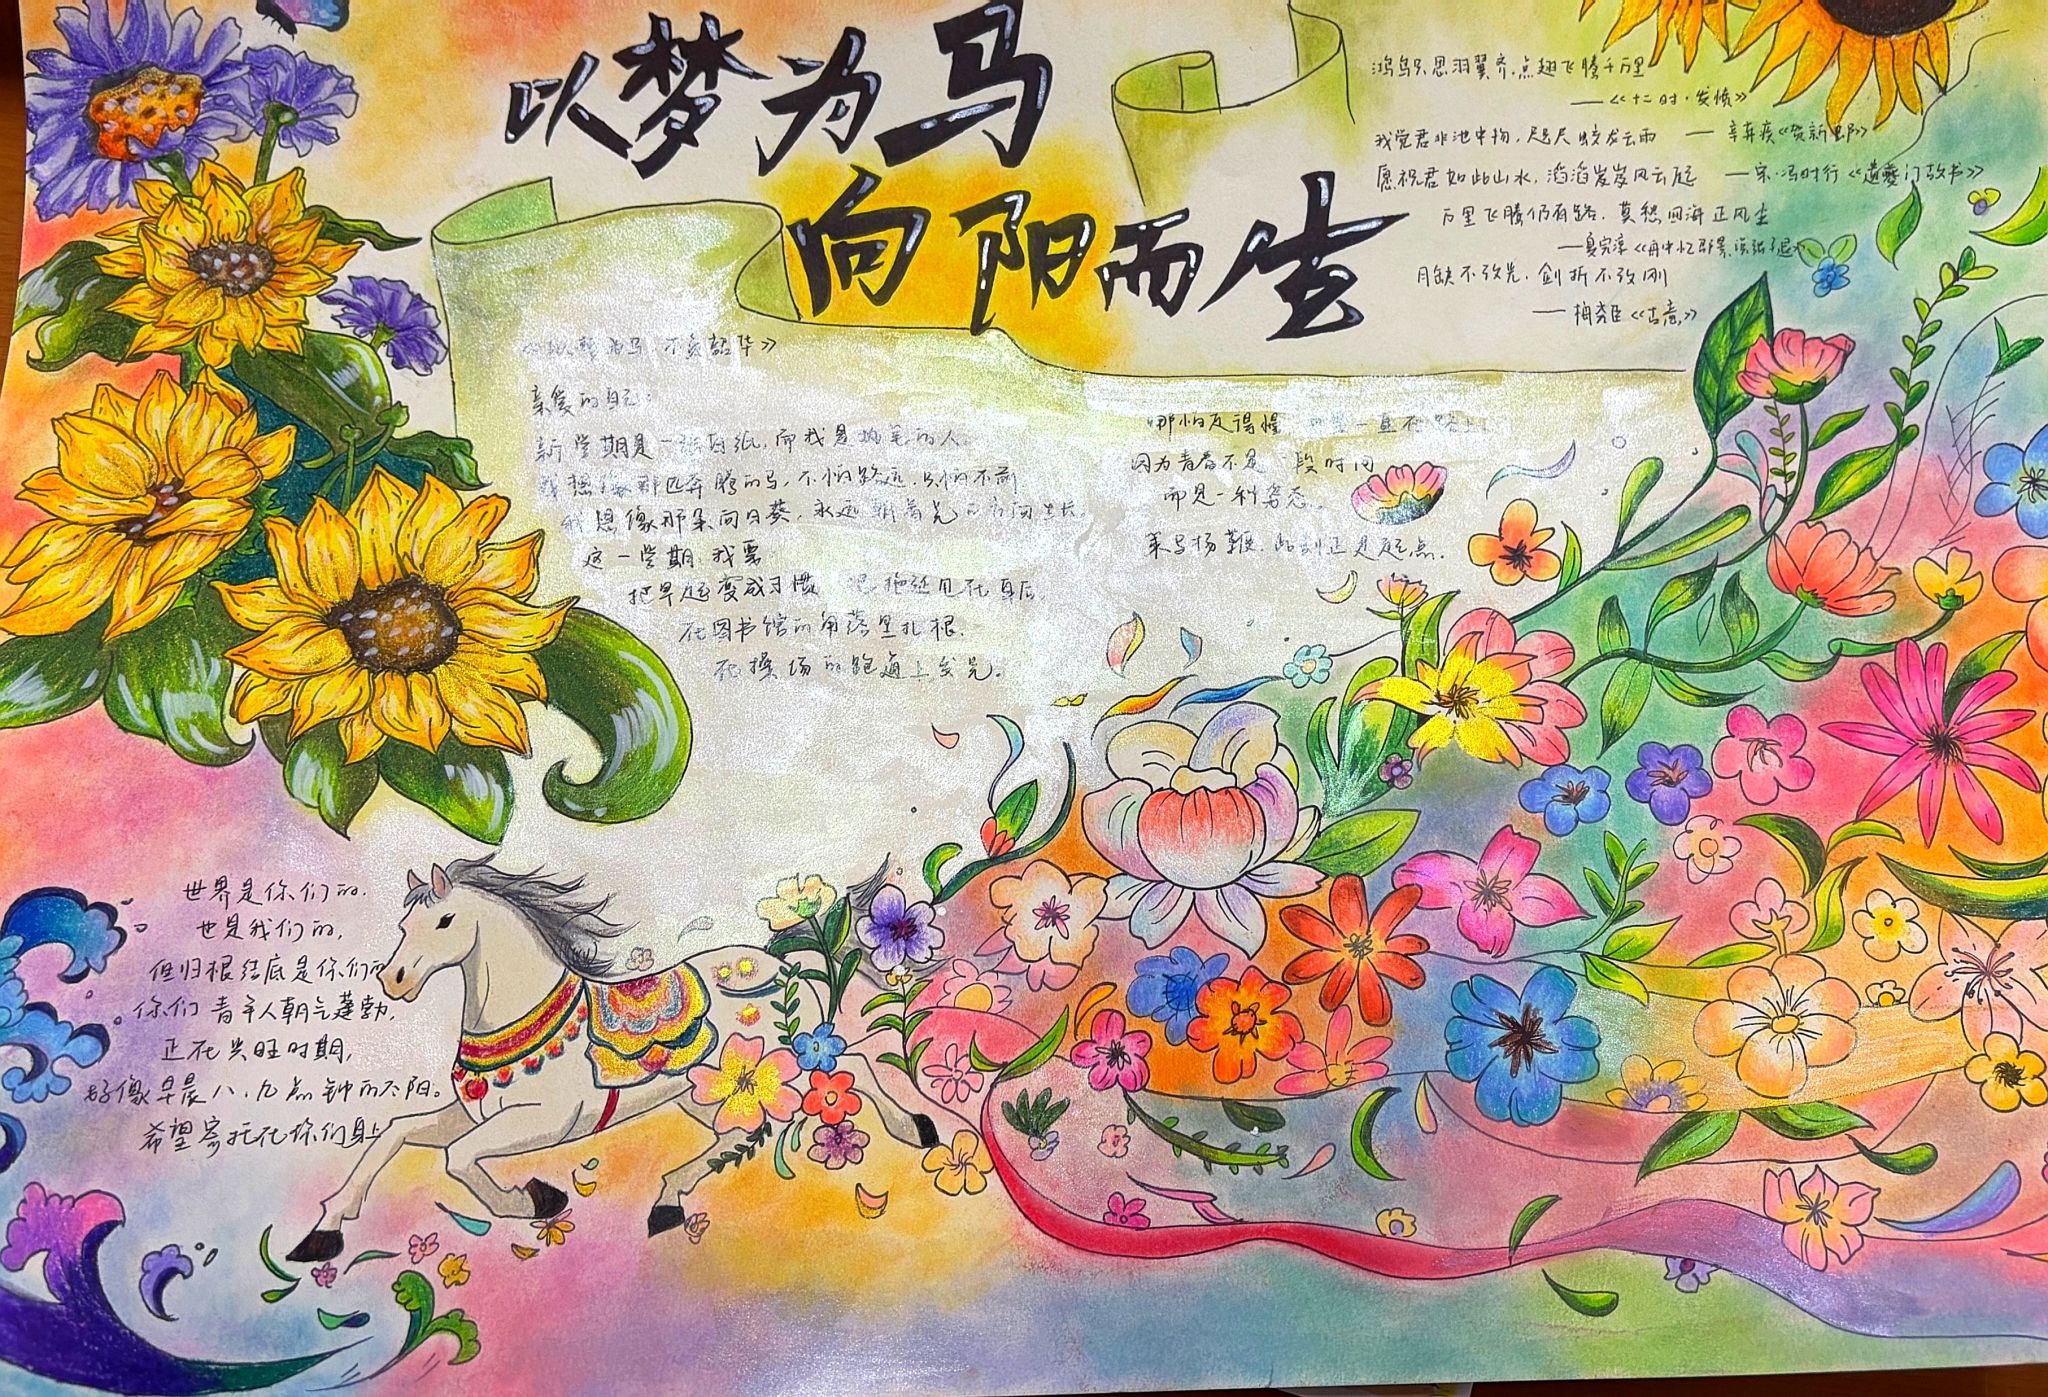 以梦为马
向阳而生
鸿鸟只思羽翼齐,点翅飞腾千万里
——《十二时·发愤》
我觉君非池中物,咫尺蛟龙云雨 —— 辛弃疾《贺新郎》
愿祝君如此山水,滔滔岌岌风云起 ——宋·冯时行《遗夔门故书》
万里飞腾仍有路,莫愁四海正风尘
——夏完淳《舟中忆邵景说张子退》
月缺不改光,剑折不改刚
——梅尧臣《古意》
《以梦为马,不负韶华》
亲爱的自己:
新学期是一张白纸,而我是执笔的人。
我想像那匹奔腾的马,不怕路远,只怕不前。
我想像那朵向日葵,永远朝着光的方向生长。
这一学期,我要
把早起变成习惯 把拖延甩在身后。
在图书馆的角落里扎根.
在操场的跑道上发光。
哪怕走得慢 一直在路上。
因为青春不是一段时间
而是一种姿态。
策马扬鞭,此刻正是起点。
世界是你们的.
也是我们的,
但归根结底是你们的
你们青年人朝气蓬勃,
正在兴旺时期,
好像早晨八、九点钟的太阳。
希望寄托在你们身上